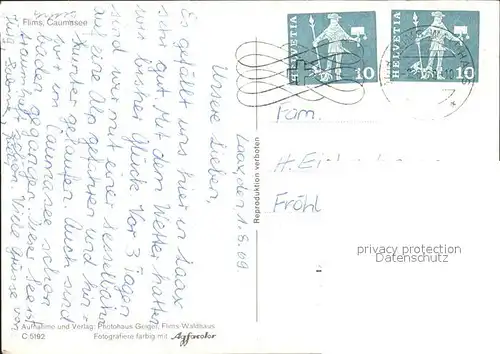 Flims, Caumasee
HELVETIA
10
HELVETIA
10
Laax, den 1.6.69
Unsere Lieben,
Es gefällt uns hier in Laax
sehr gut. Mit dem Wetter hatten
wir bisher Glück. Vor 3 Tagen
sind wir mit einer Sesselbahn
auf eine Alp gefahren und hin-
runter gelaufen. Auch sind
wir im Caumasee schon
baden gegangen. Dieser See ist
traumhaft schön. Viele Grüsse von
Fam.
H.
Fröhl
Reproduktion verboten
privacy protection
Datenschutz
Aufnahme und Verlag: Photohaus Geiger, Flims-Waldhaus
C 5192 Fotografiere farbig mit Agfacolor